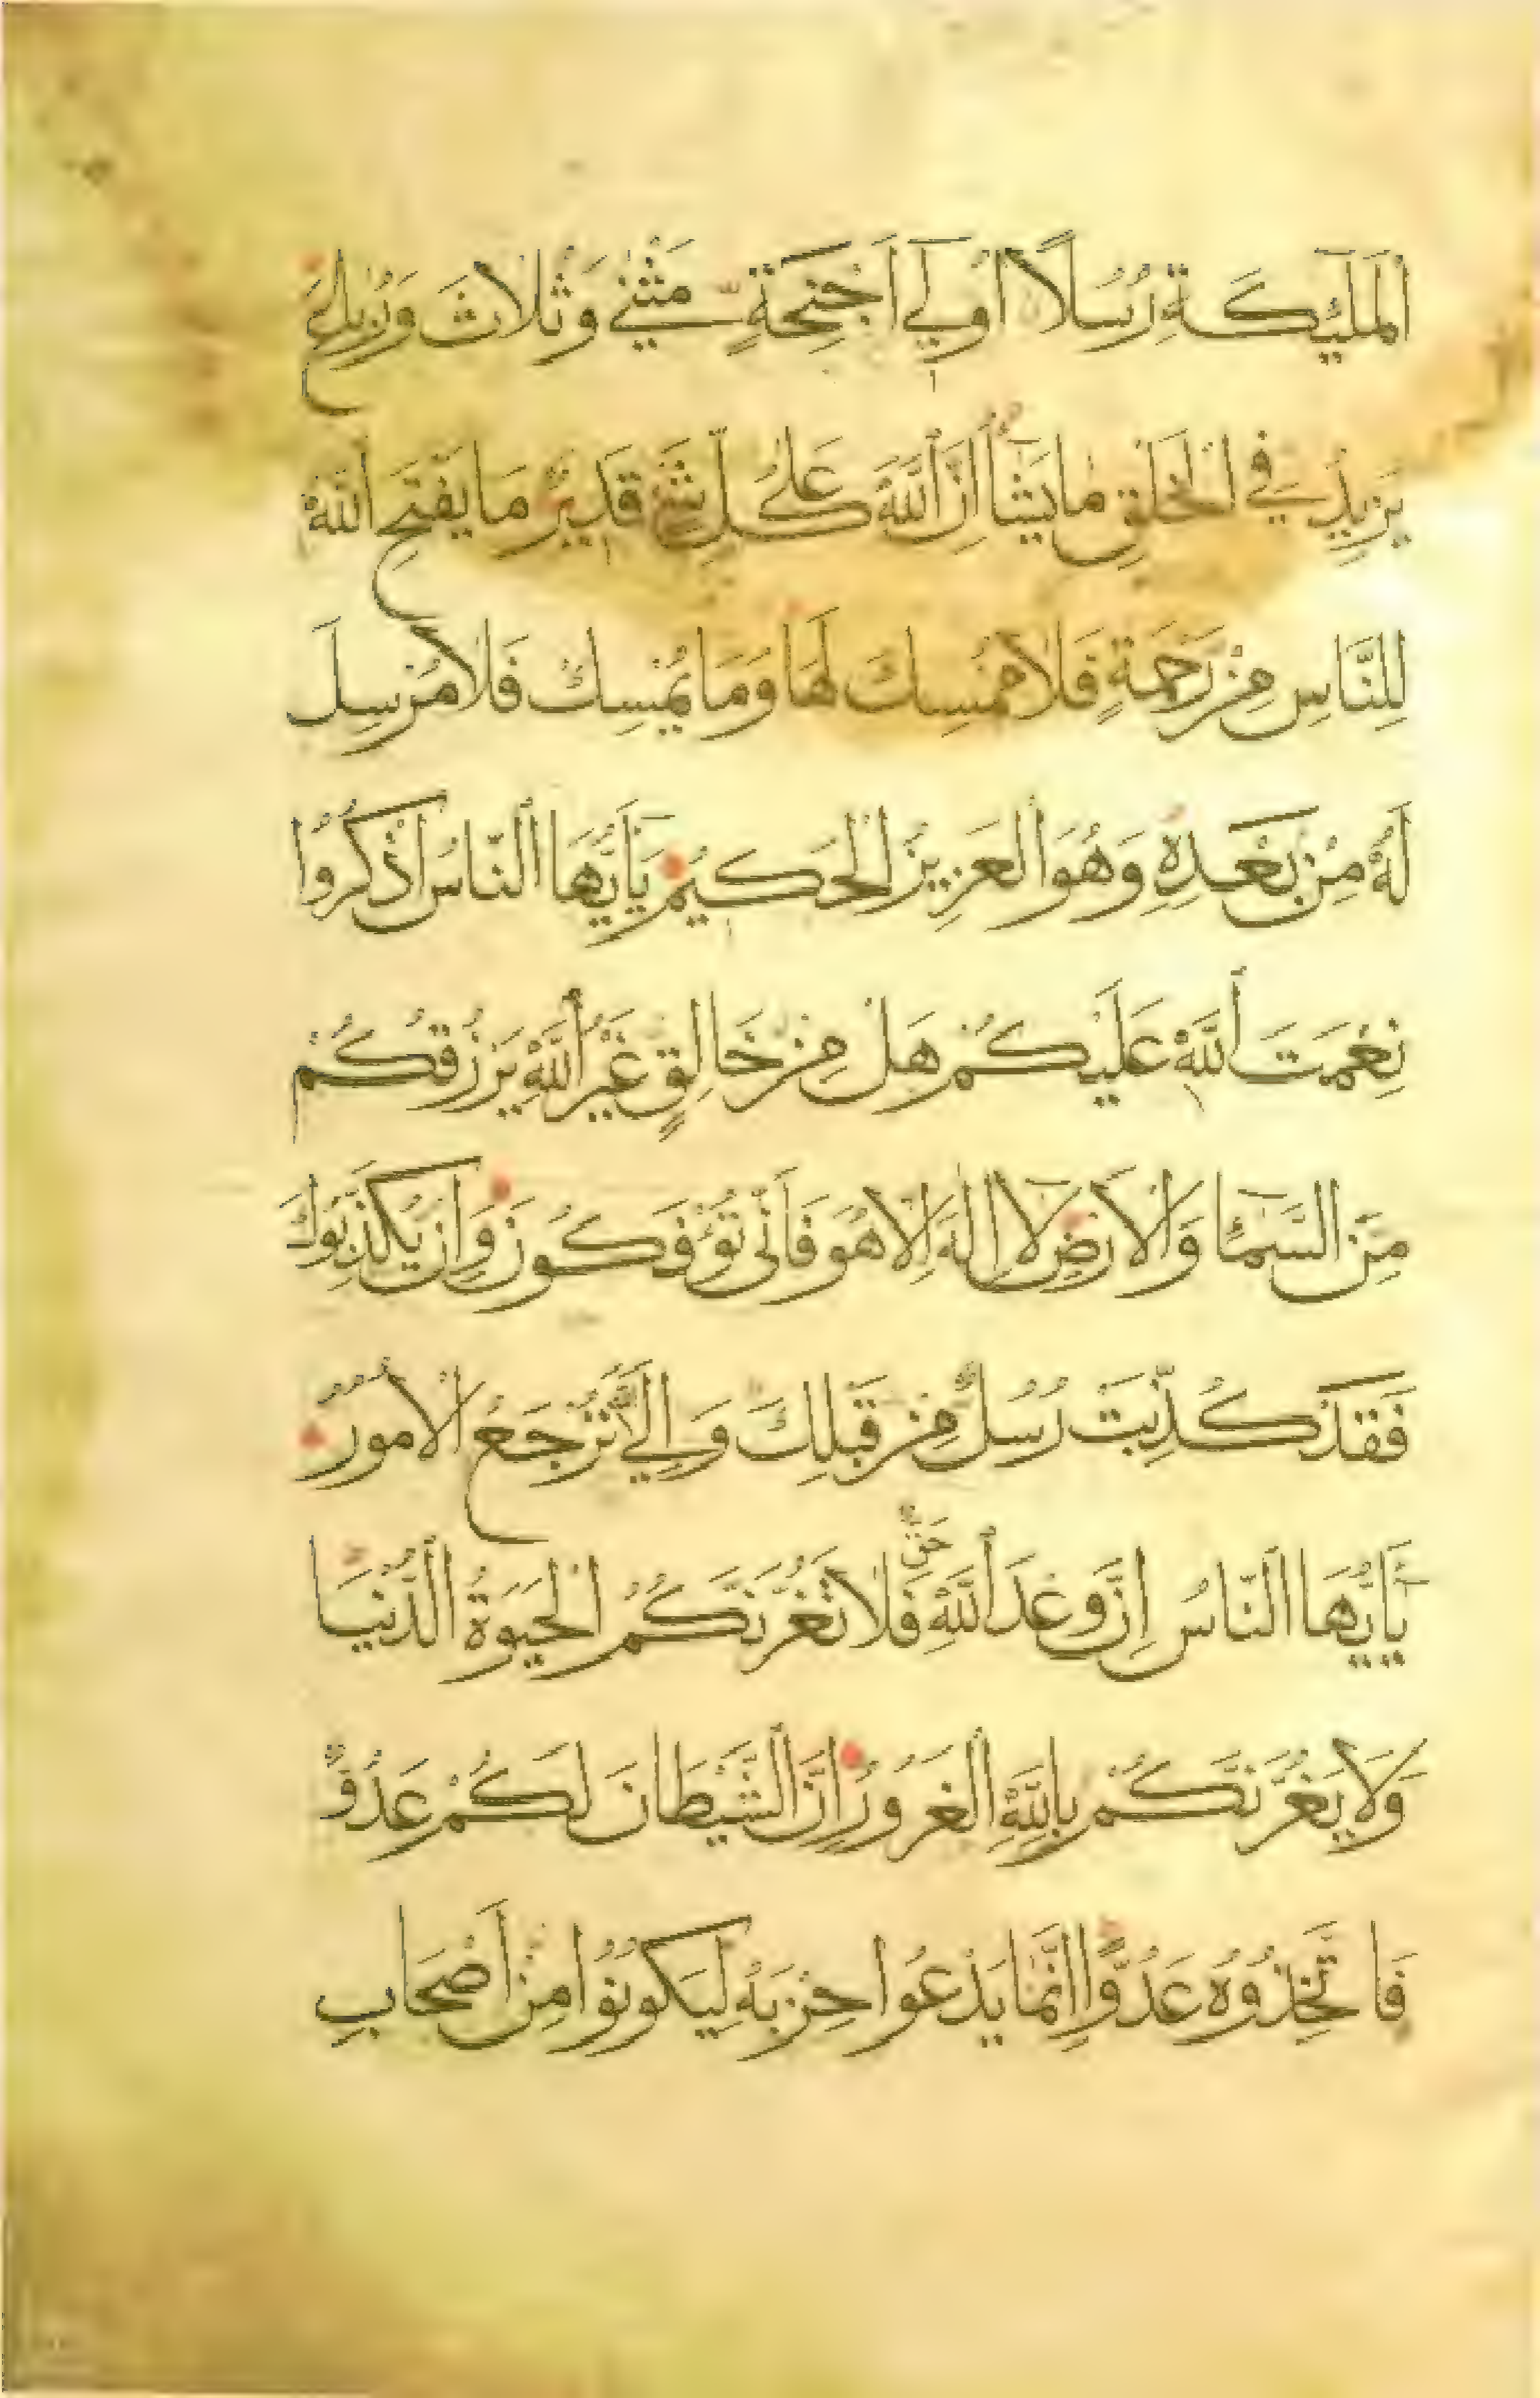 اَلْمَلٰٓئِكَةِ رُسُلًا اُولِي اَجْنِحَةٍ مَثْنٰى وَثُلَاثَ وَرُبَاعَ
يَزِيدُ فِي الْخَلْقِ مَا يَشَآءُ اِنَّ اللّٰهَ عَلٰى كُلِّ شَيْءٍ قَدِيرٌ مَا يَفْتَحِ اللّٰهُ
لِلنَّاسِ مِنْ رَحْمَةٍ فَلَا مُمْسِكَ لَهَا وَمَا يُمْسِكْ فَلَا مُرْسِلَ
لَهُ مِنْ بَعْدِهِ وَهُوَ الْعَزِيزُ الْحَكِيمُ يَآ اَيُّهَا النَّاسُ اذْكُرُوا
نِعْمَتَ اللّٰهِ عَلَيْكُمْ هَلْ مِنْ خَالِقٍ غَيْرُ اللّٰهِ يَرْزُقُكُمْ
مِنَ السَّمَآءِ وَالْاَرْضِ لَآ اِلٰهَ اِلَّا هُوَ فَاَنّٰى تُؤْفَكُونَ وَاِنْ يُكَذِّبُوكَ
فَقَدْ كُذِّبَتْ رُسُلٌ مِنْ قَبْلِكَ وَاِلَى اللّٰهِ تُرْجَعُ الْاُمُورُ
يَآ اَيُّهَا النَّاسُ اِنَّ وَعْدَ اللّٰهِ حَقٌّ فَلَا تَغُرَّنَّكُمُ الْحَيٰوةُ الدُّنْيَا
وَلَا يَغُرَّنَّكُمْ بِاللّٰهِ الْغَرُورُ اِنَّ الشَّيْطَانَ لَكُمْ عَدُوٌّ
فَاتَّخِذُوهُ عَدُوًّا اِنَّمَا يَدْعُوا حِزْبَهُ لِيَكُونُوا مِنْ اَصْحَابِ